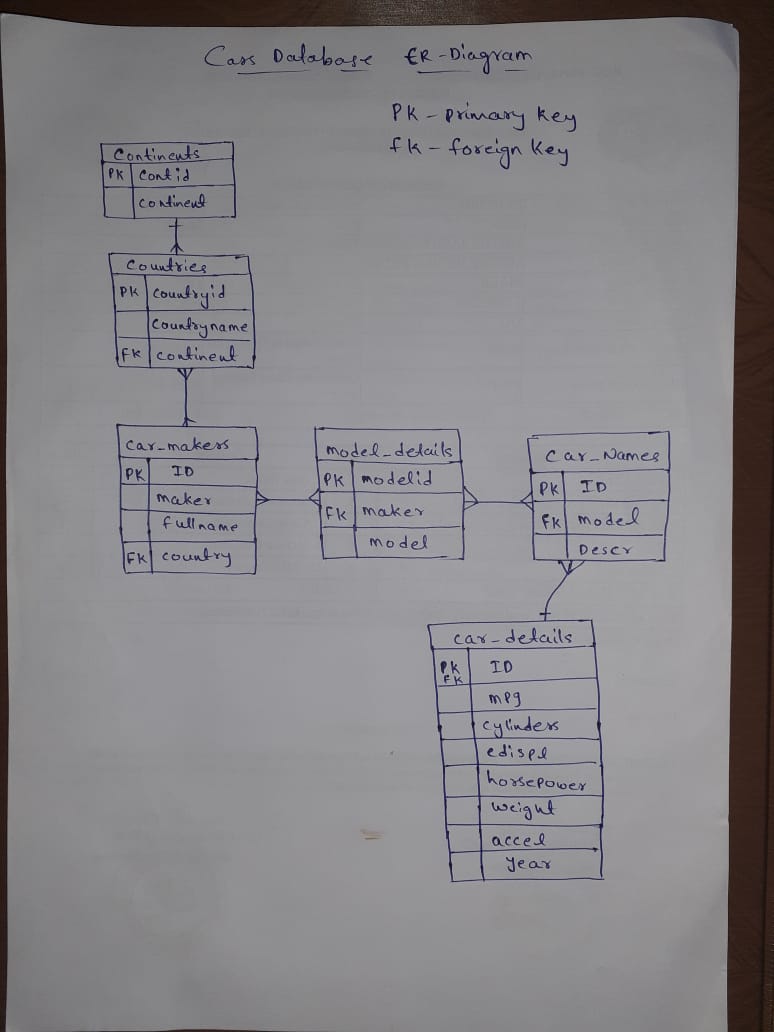 Cars Database ER-Diagram
PK - primary key
fk - foreign key
Continents
PK contid
continent
Countries
PK countryid
countryname
FK continent
car_makers
PK ID
maker
fullname
FK country
model_details
PK modelid
FK maker
model
Car_Names
PK ID
FK model
Descr
car-details
PK FK ID
mpg
cylinders
edispl
horsepower
weight
accel
year